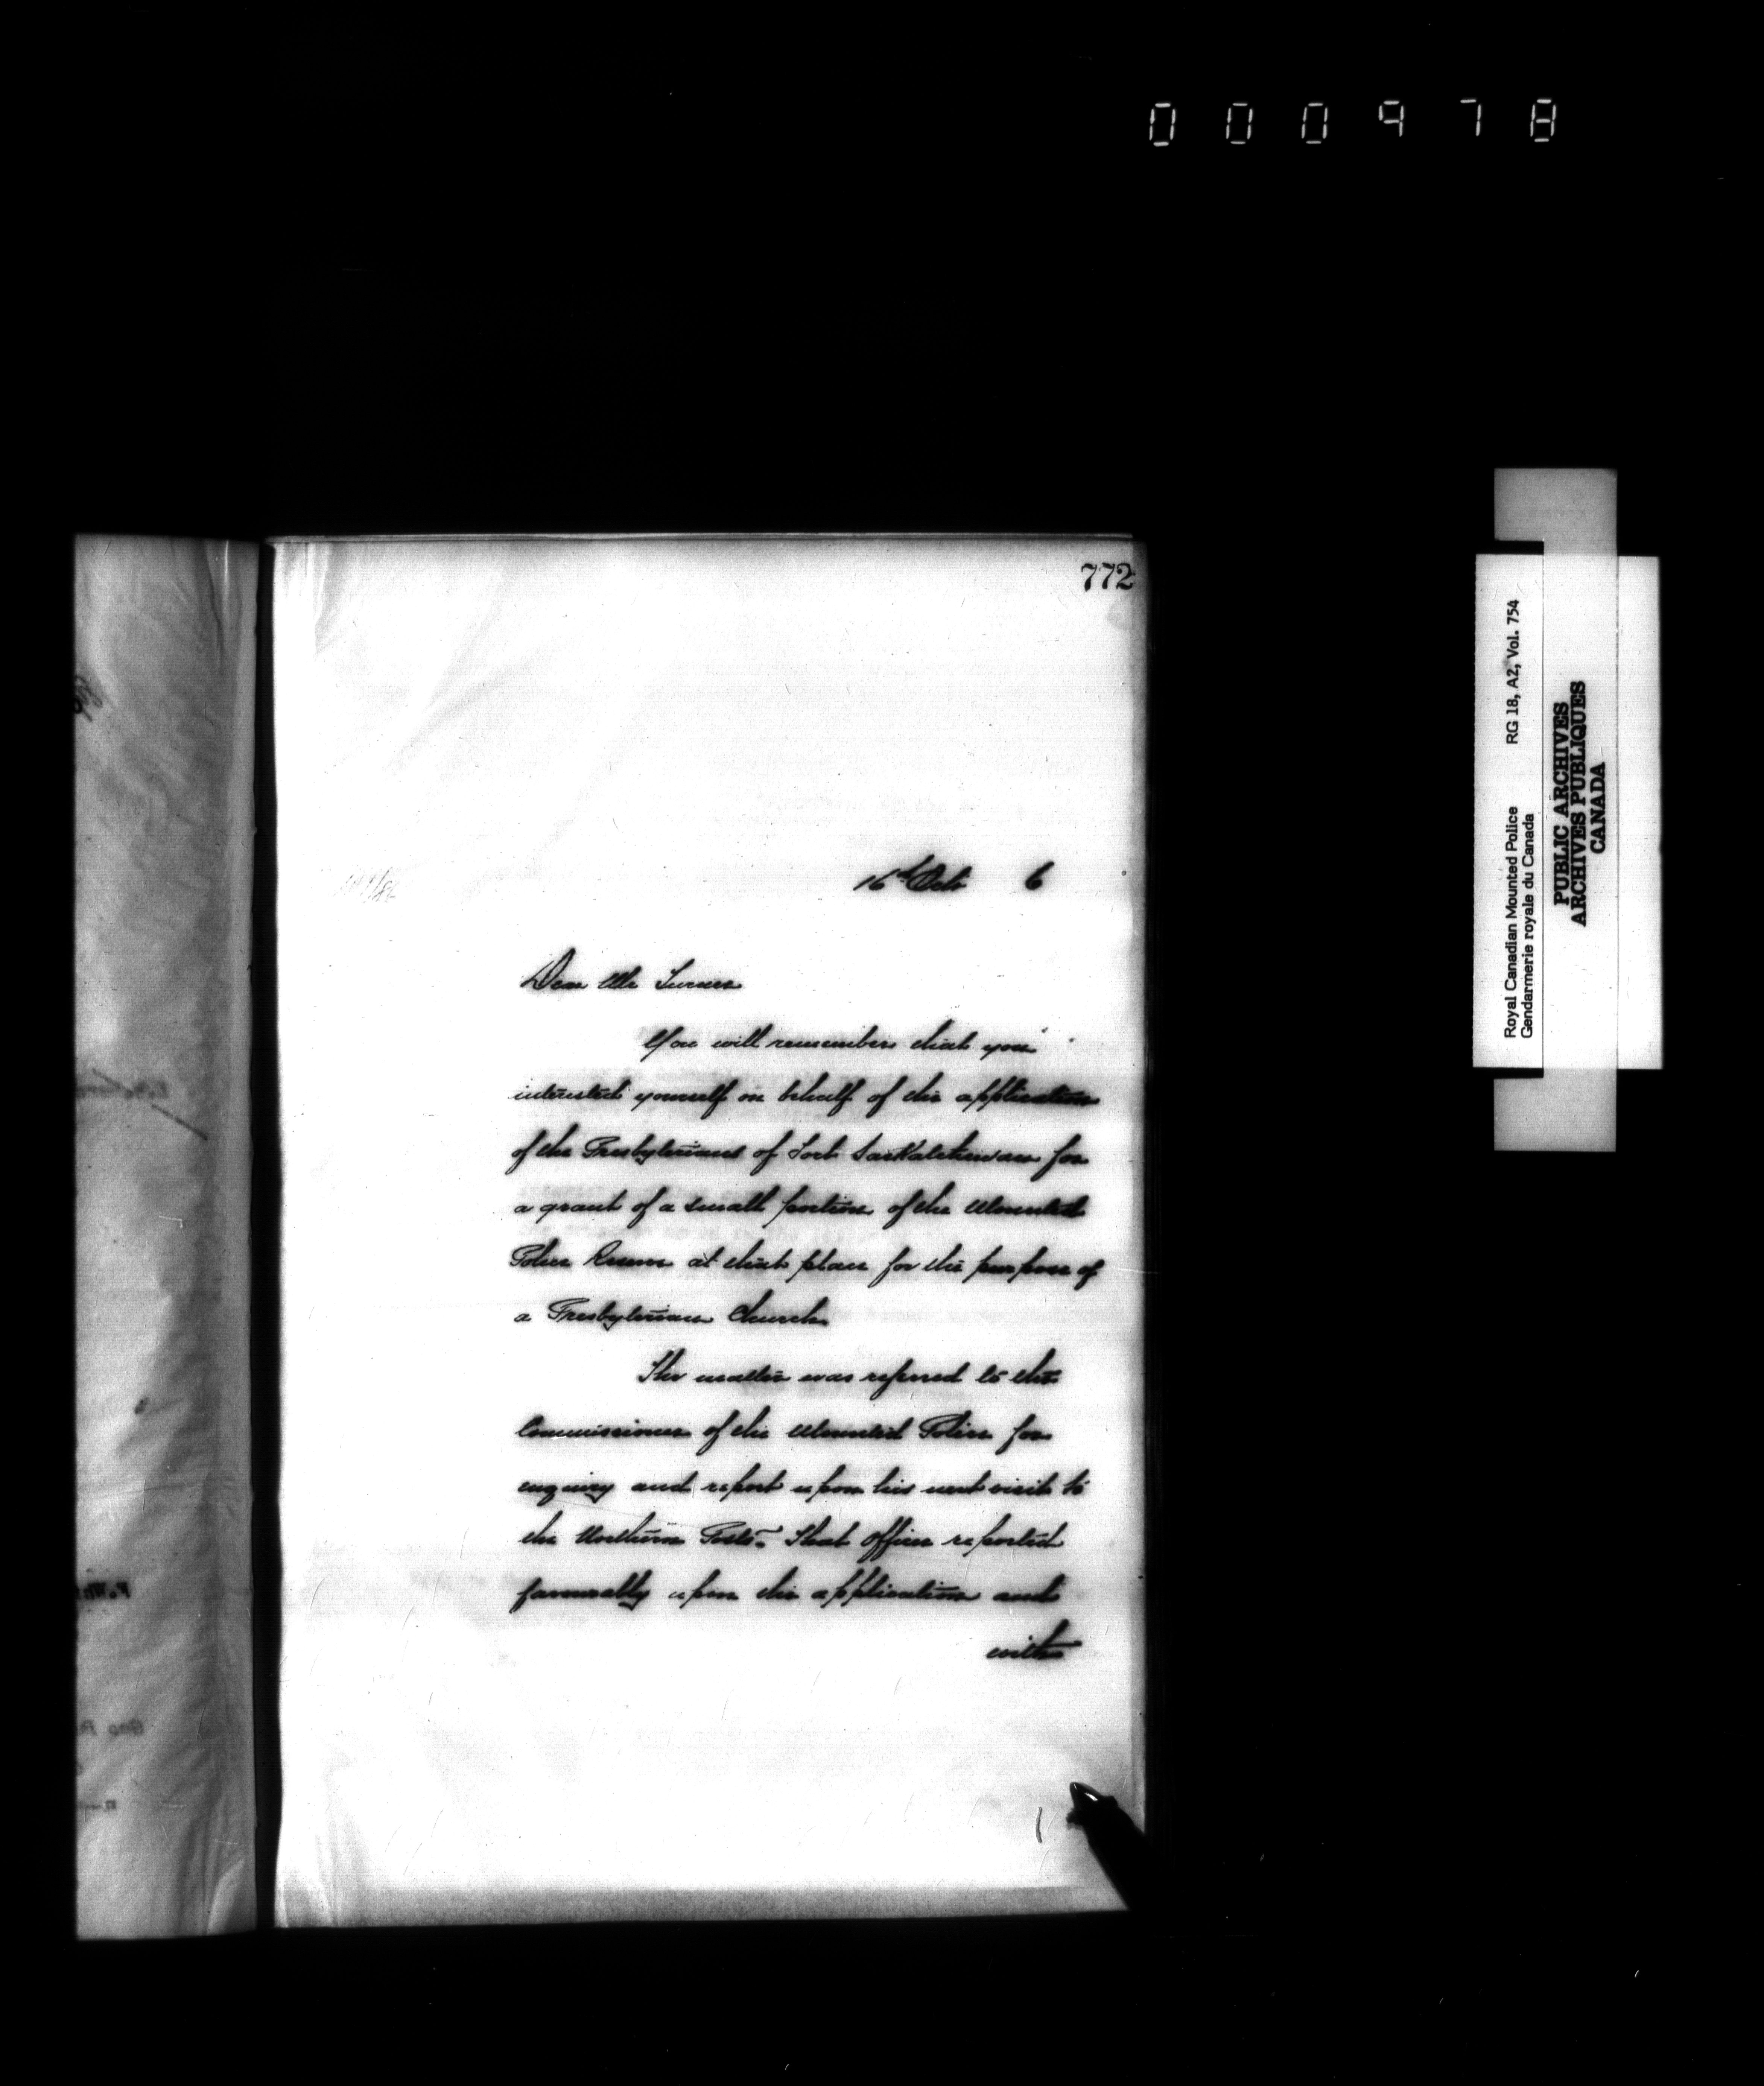 000978
772
16th Oct 6
Dear Mr Turner
You will remember that you
interested yourself on behalf of the application
of the Presbyterians of Fort Saskatchewan for
a grant of a small portion of the Mounted
Police Reserve at that place for the purpose of
a Presbyterian Church
The matter was referred to the
Commissioner of the Mounted Police for
enquiry and report upon his next visit to
the Northern Posts. That officer reported
favourably upon the application and
with
Royal Canadian Mounted Police RG 18, A2, Vol. 754
Gendarmerie royale du Canada
PUBLIC ARCHIVES
ARCHIVES PUBLIQUES
CANADA